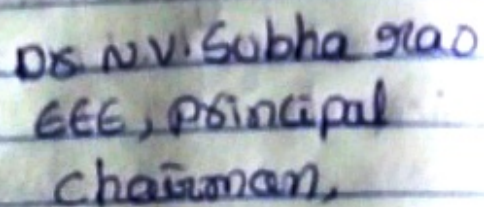 Dr N.V. Subha rao
EEE, principal
chairman,